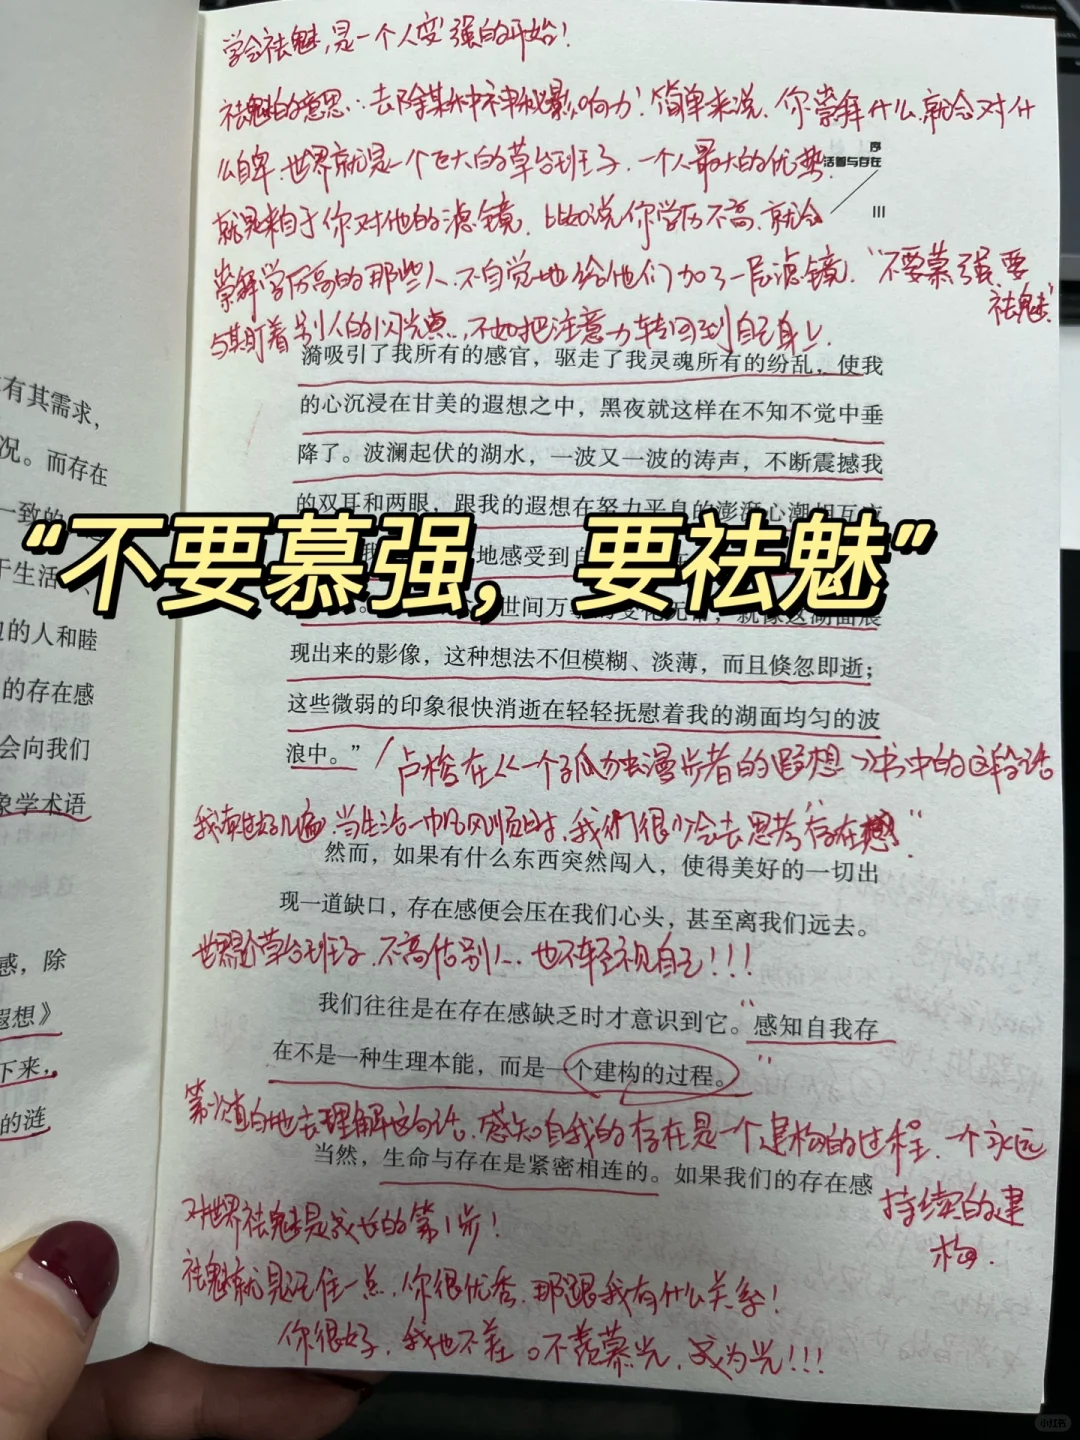 学会祛魅,是一个人变强的开始!
祛魅的意思:去除某种神秘影响力!简单来说,你崇拜什么,就会对什
么自卑.世界就是一个巨大的草台班子.一个人最大的优势
序
活着与存在
III
就是来自于你对他的滤镜,比如说你学历不高,就会
崇拜学历高的那些人,不自觉地给他们加了一层滤镜."不要慕强,要
祛魅"
与其盯着别人的闪光点,不如把注意力转回到自己身上.
漪吸引了我所有的感官,驱走了我灵魂所有的纷乱,使我
的心沉浸在甘美的遐想之中,黑夜就这样在不知不觉中垂
降了。波澜起伏的湖水,一波又一波的涛声,不断震撼我
的双耳和两眼,跟我的遐想在努力平息的澎湃心潮相互交
"不要慕强,要祛魅"
地感受到自
世间万
现出来的影像,这种想法不但模糊、淡薄,而且倏忽即逝;
这些微弱的印象很快消逝在轻轻抚慰着我的湖面均匀的波
浪中。"
/卢梭在《一个孤独漫步者的遐想》书中的这段话
我读过好几遍.当生活一帆风顺时,我们很少会去思考"存在感".
然而,如果有什么东西突然闯入,使得美好的一切出
现一道缺口,存在感便会压在我们心头,甚至离我们远去。
世界是个草台班子.不高估别人.也不轻视自己!!!
我们往往是在存在感缺乏时才意识到它。"感知自我存
在不是一种生理本能,而是一个建构的过程。"
第一次直白地去理解这句话.感知自我的存在是一个建构的过程.一个永远
持续的建
构.
当然,生命与存在是紧密相连的。如果我们的存在感
对世界祛魅是成长的第1步!
祛魅就是记住一点.你很优秀.那跟我有什么关系!
你很好.我也不差。不羡慕光.成为光!!!
有其需求,
况。而存在
一致的
于生活
边的人和睦
的存在感
会向我们
象学术语
感,除
遐想》
下来,
的涟
小红书